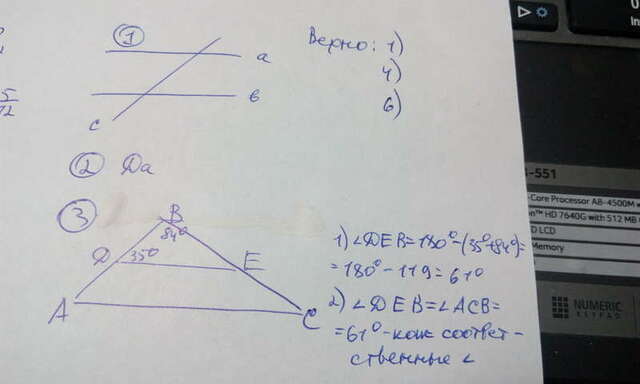 1
a
в
c
Верно: 1)
4)
6)
2 Да
3
B
84°
D 35° E
A C
1) ∠DEB=180°-(35°+84°)=
=180°-119=61°
2) ∠DEB=∠ACB=
=61°-как соответ-
ственные ∠
5
12
-551
-Core Processor A8-4500M
HD 7640G with 512 MB
D LCD
Memory
NUMERIC
KEYPAD